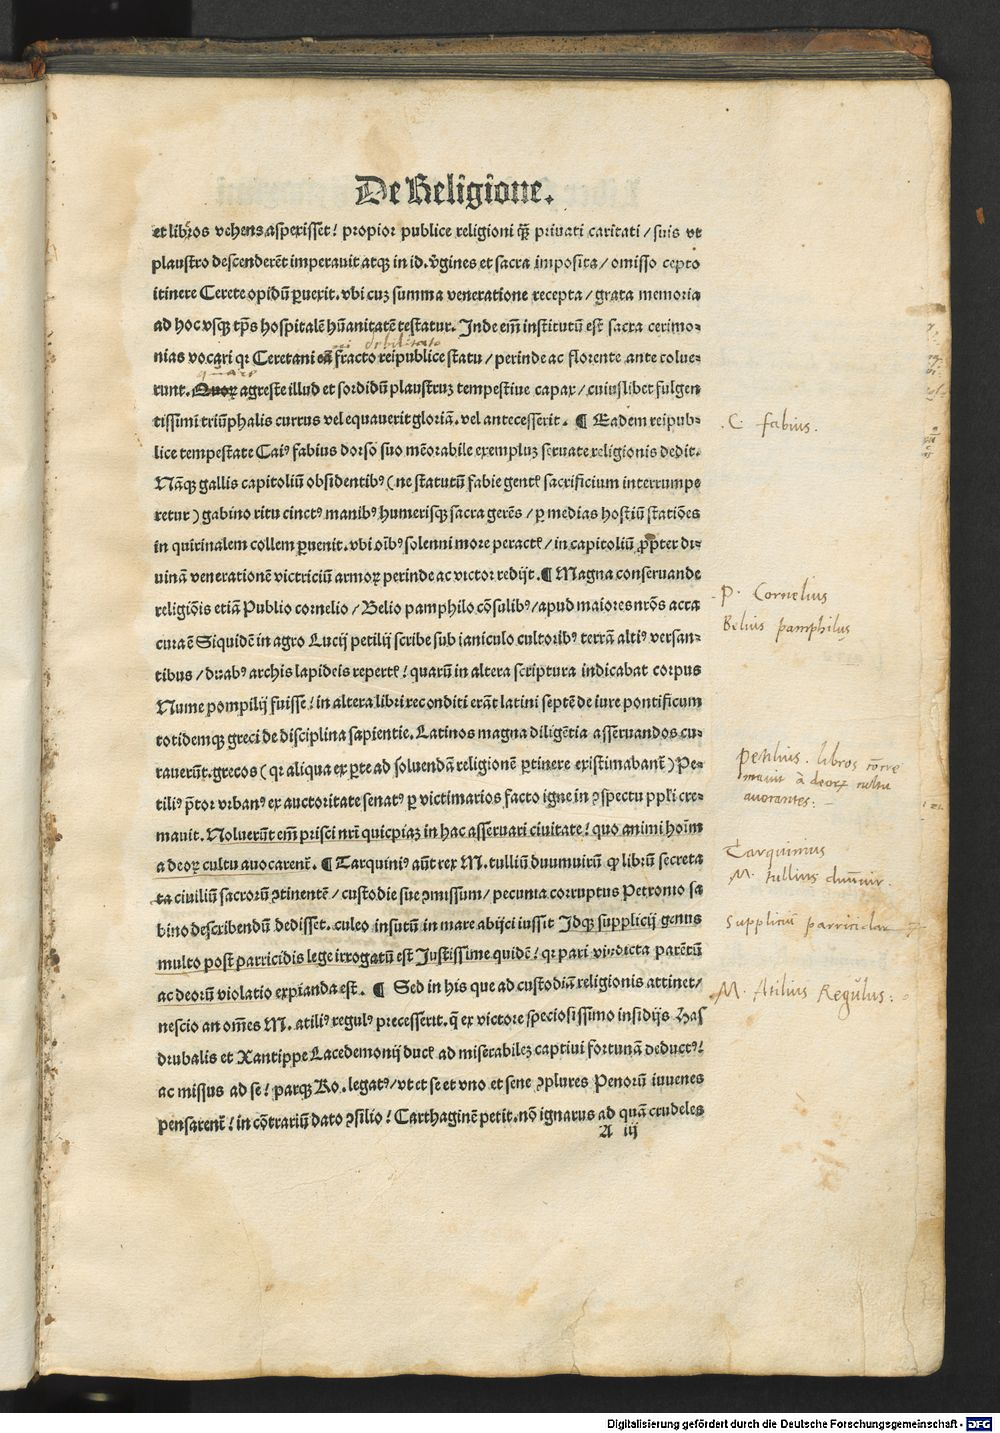 De Religione.
et libros vehens aspexisset! propior publice religioni qȝ priuati caritati / suis vt
plaustro descenderēt imperauit atqȝ in id. v̄gines et sacra imposita / omisso cepto
itinere Cerete opidū ꝑuexit. vbi cuȝ summa veneratione recepta / grata memoria
ad hoc vsqȝ tp̄s hospitalē hūanitatē testatur. Inde em̄ institutū est sacra cerimo-
debilitato
nias vocari qꝛ Ceretani eā fracto reipublice statu / perinde ac florente ante colue-
quare
runt. Quoꝝ agreste illud et sordidū plaustruȝ tempestiue capax / cuiuslibet fulgen
tissimi triūphalis currus vel equauerit gloriā. vel antecesserit. ¶ Eadem reipub-
C fabius.
lice tempestate Caiꝰ fabius dorso suo mēorabile exempluȝ seruate religionis dedit.
Nāqȝ gallis capitoliū obsidentibꝰ (ne statutū fabie gentꝭ sacrificium interrumpe
retur) gabino ritu cinctꝰ manibꝰ humerisqȝ sacra gerēs / ꝑ medias hostiū statiōes
in quirinalem collem ꝑuenit. vbi oībꝰ solenni more peractꝭ / in capitoliū ꝓpter di-
uinā venerationē victriciū armoꝝ perinde ac victor redijt. ¶ Magna conseruande
P. Cornelius
religiōis etiā Publio cornelio / Belio pamphilo cōsulibꝰ / apud maiores nr̄os acta
Belius pamphilus
cura ē Siquidē in agro Lucij petilij scribe sub ianiculo cultoribꝰ terrā altiꝰ versan-
tibus / duabꝰ archis lapideis repertꝭ! quarū in altera scriptura indicabat corpus
Nume pompilij fuisse! in altera libri reconditi erāt latini septē de iure pontificum
totidemqȝ greci de disciplina sapientie. Latinos magna diligētia asseruandos cu-
petilius. libros corre
rauerūt. grecos (qꝛ aliqua ex ꝑte ad soluendā religionē ꝑtinere existimabant̄) Pe-
mauit a deoꝝ cultu
tiliꝰ p̄tor vrbanꝰ ex auctoritate senatꝰ ꝑ victimarios facto igne in ꝯspectu ppl̄i cre-
auorantes:
mauit. Noluerūt em̄ prisci nr̄i quicpiaȝ in hac asseruari ciuitate! quo animi hoīm
Tarquinius
a deoꝝ cultu auocarent̄. ¶ Tarquiniꝰ aūt rex M. tulliū duumuirū ꝙ librū secreta
M. tullius duūuir.
ta ciuiliū sacrorū ꝯtinentē / custodie sue ꝯmissum / pecunia corruptus Petronio sa
bino describendū dedisset. culeo insutū in mare abijci iussit Idqȝ supplicij genus
Suppliciū parricidar
multo post parricidis lege irrogatū est Iustissime quidē! qꝛ pari vindicta parētū
ac deorū violatio expianda est. ¶ Sed in his que ad custodiā religionis attinet /
M. Atilius Regulus:
nescio an om̄es M. atiliꝰ regulꝰ precesserit. q̄ ex victore speciosissimo insidijs Has
drubalis et Xantippe Lacedemonij ducꝭ ad miserabileȝ captiui fortunā deductꝰ!
ac missus ad se! parqȝ Ro. legatꝰ / vt et se et vno et sene ꝯplures Penorū iuuenes
pensarent̄! in cōtrariū dato ꝯsilio! Carthaginē petit. nō ignarus ad quā crudeles
A iij
Digitalisierung gefördert durch die Deutsche Forschungsgemeinschaft - DFG